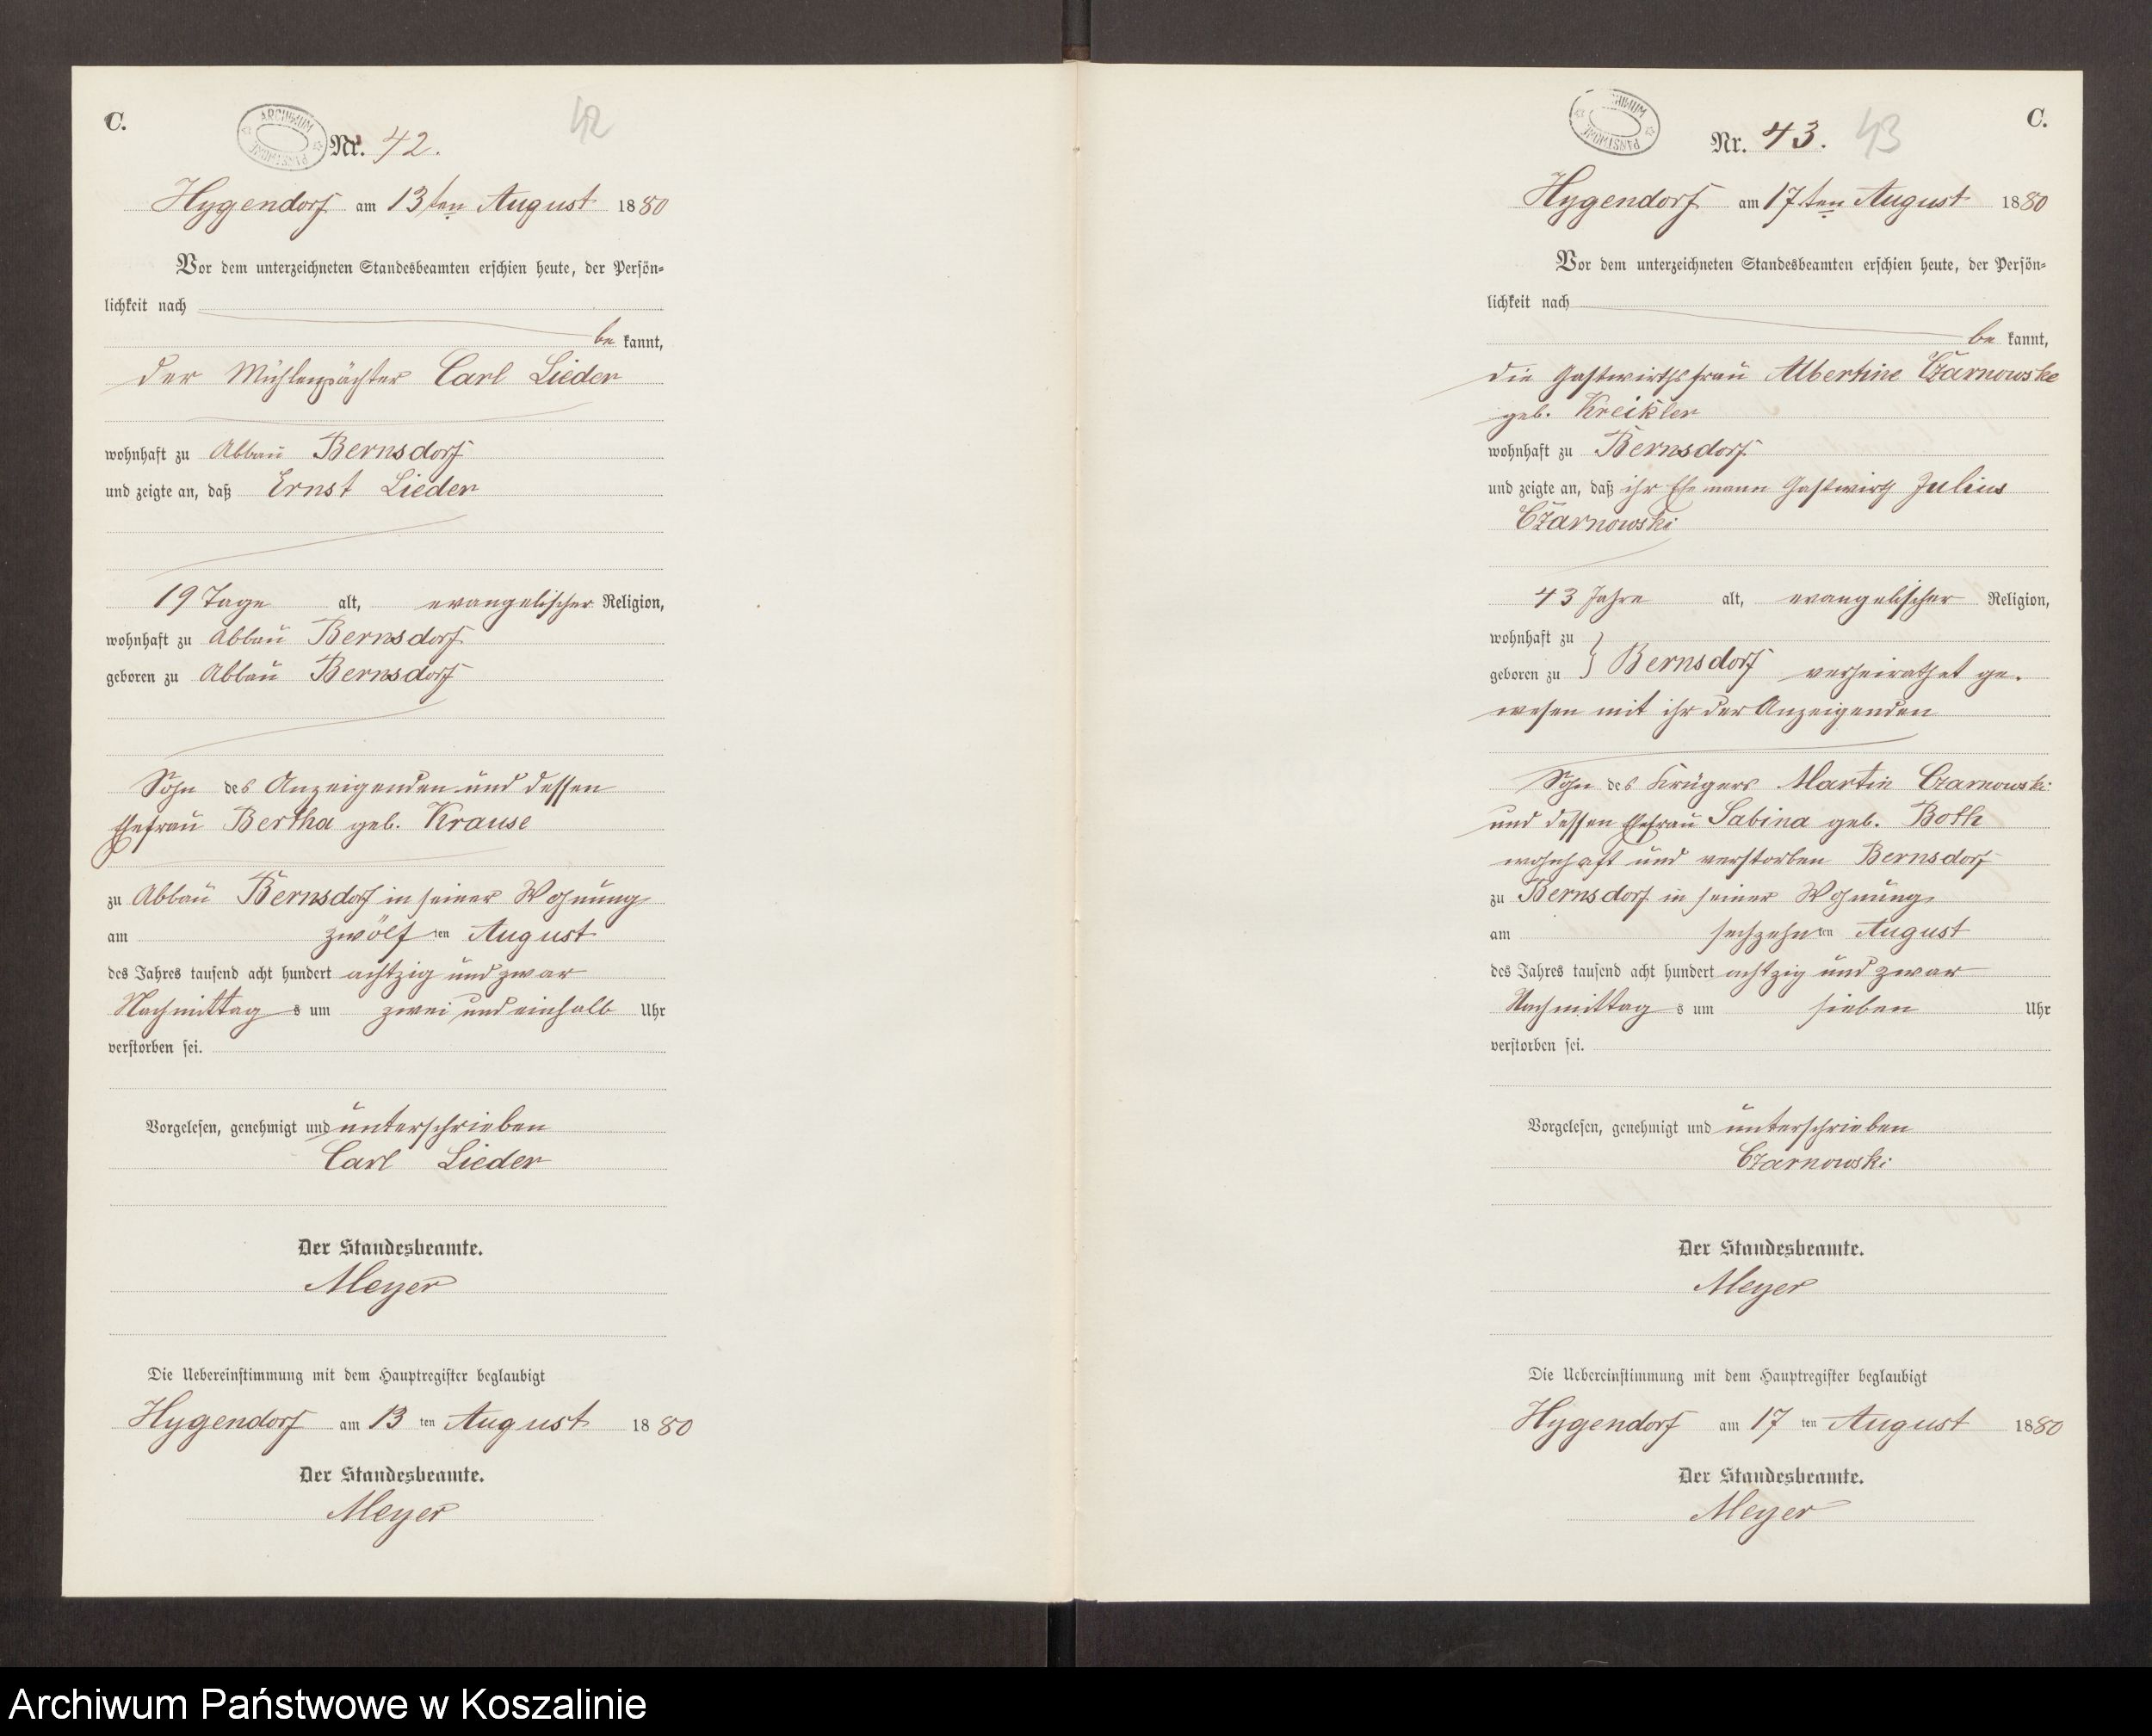 C.
ARCHIWUM PAŃSTWOWE
Nr. 42.
42
Hygendorf am 13ten August 1880
Vor dem unterzeichneten Standesbeamten erschien heute, der Persön-
lichkeit nach
be kannt,
der Mühlenpächter Carl Lieder
wohnhaft zu Abbau Bernsdorf
und zeigte an, daß Ernst Lieder
19 Tage alt, evangelischer Religion,
wohnhaft zu Abbau Bernsdorf
geboren zu Abbau Bernsdorf
Sohn des Anzeigenden und dessen
Ehefrau Bertha geb. Krause
zu Abbau Bernsdorf in seiner Wohnung
am zwölf ten August
des Jahres tausend acht hundert achtzig und zwar
Nachmittag s um zwei und einhalb Uhr
verstorben sei.
Vorgelesen, genehmigt und unterschrieben
Carl Lieder
Der Standesbeamte.
Meyer
Die Uebereinstimmung mit dem Hauptregister beglaubigt
Hygendorf am 13 ten August 1880
Der Standesbeamte.
Meyer
C.
ARCHIWUM PAŃSTWOWE
Nr. 43.
43
Hygendorf am 17ten August 1880
Vor dem unterzeichneten Standesbeamten erschien heute, der Persön-
lichkeit nach
be kannt,
die Gastwirthsfrau Albertine Czarnowske
geb. Kreikler
wohnhaft zu Bernsdorf
und zeigte an, daß ihr Ehemann Gastwirth Julius
Czarnowski
43 Jahre alt, evangelischer Religion,
wohnhaft zu
geboren zu } Bernsdorf verheirathet ge-
wesen mit ihr der Anzeigenden
Sohn des Krügers Martin Czarnowski
und dessen Ehefrau Sabina geb. Both
wohnhaft und verstorben Bernsdorf
zu Bernsdorf in seiner Wohnung
am sechzehn ten August
des Jahres tausend acht hundert achtzig und zwar
Nachmittag s um sieben Uhr
verstorben sei.
Vorgelesen, genehmigt und unterschrieben
Czarnowski
Der Standesbeamte.
Meyer
Die Uebereinstimmung mit dem Hauptregister beglaubigt
Hygendorf am 17 ten August 1880
Der Standesbeamte.
Meyer
Archiwum Państwowe w Koszalinie